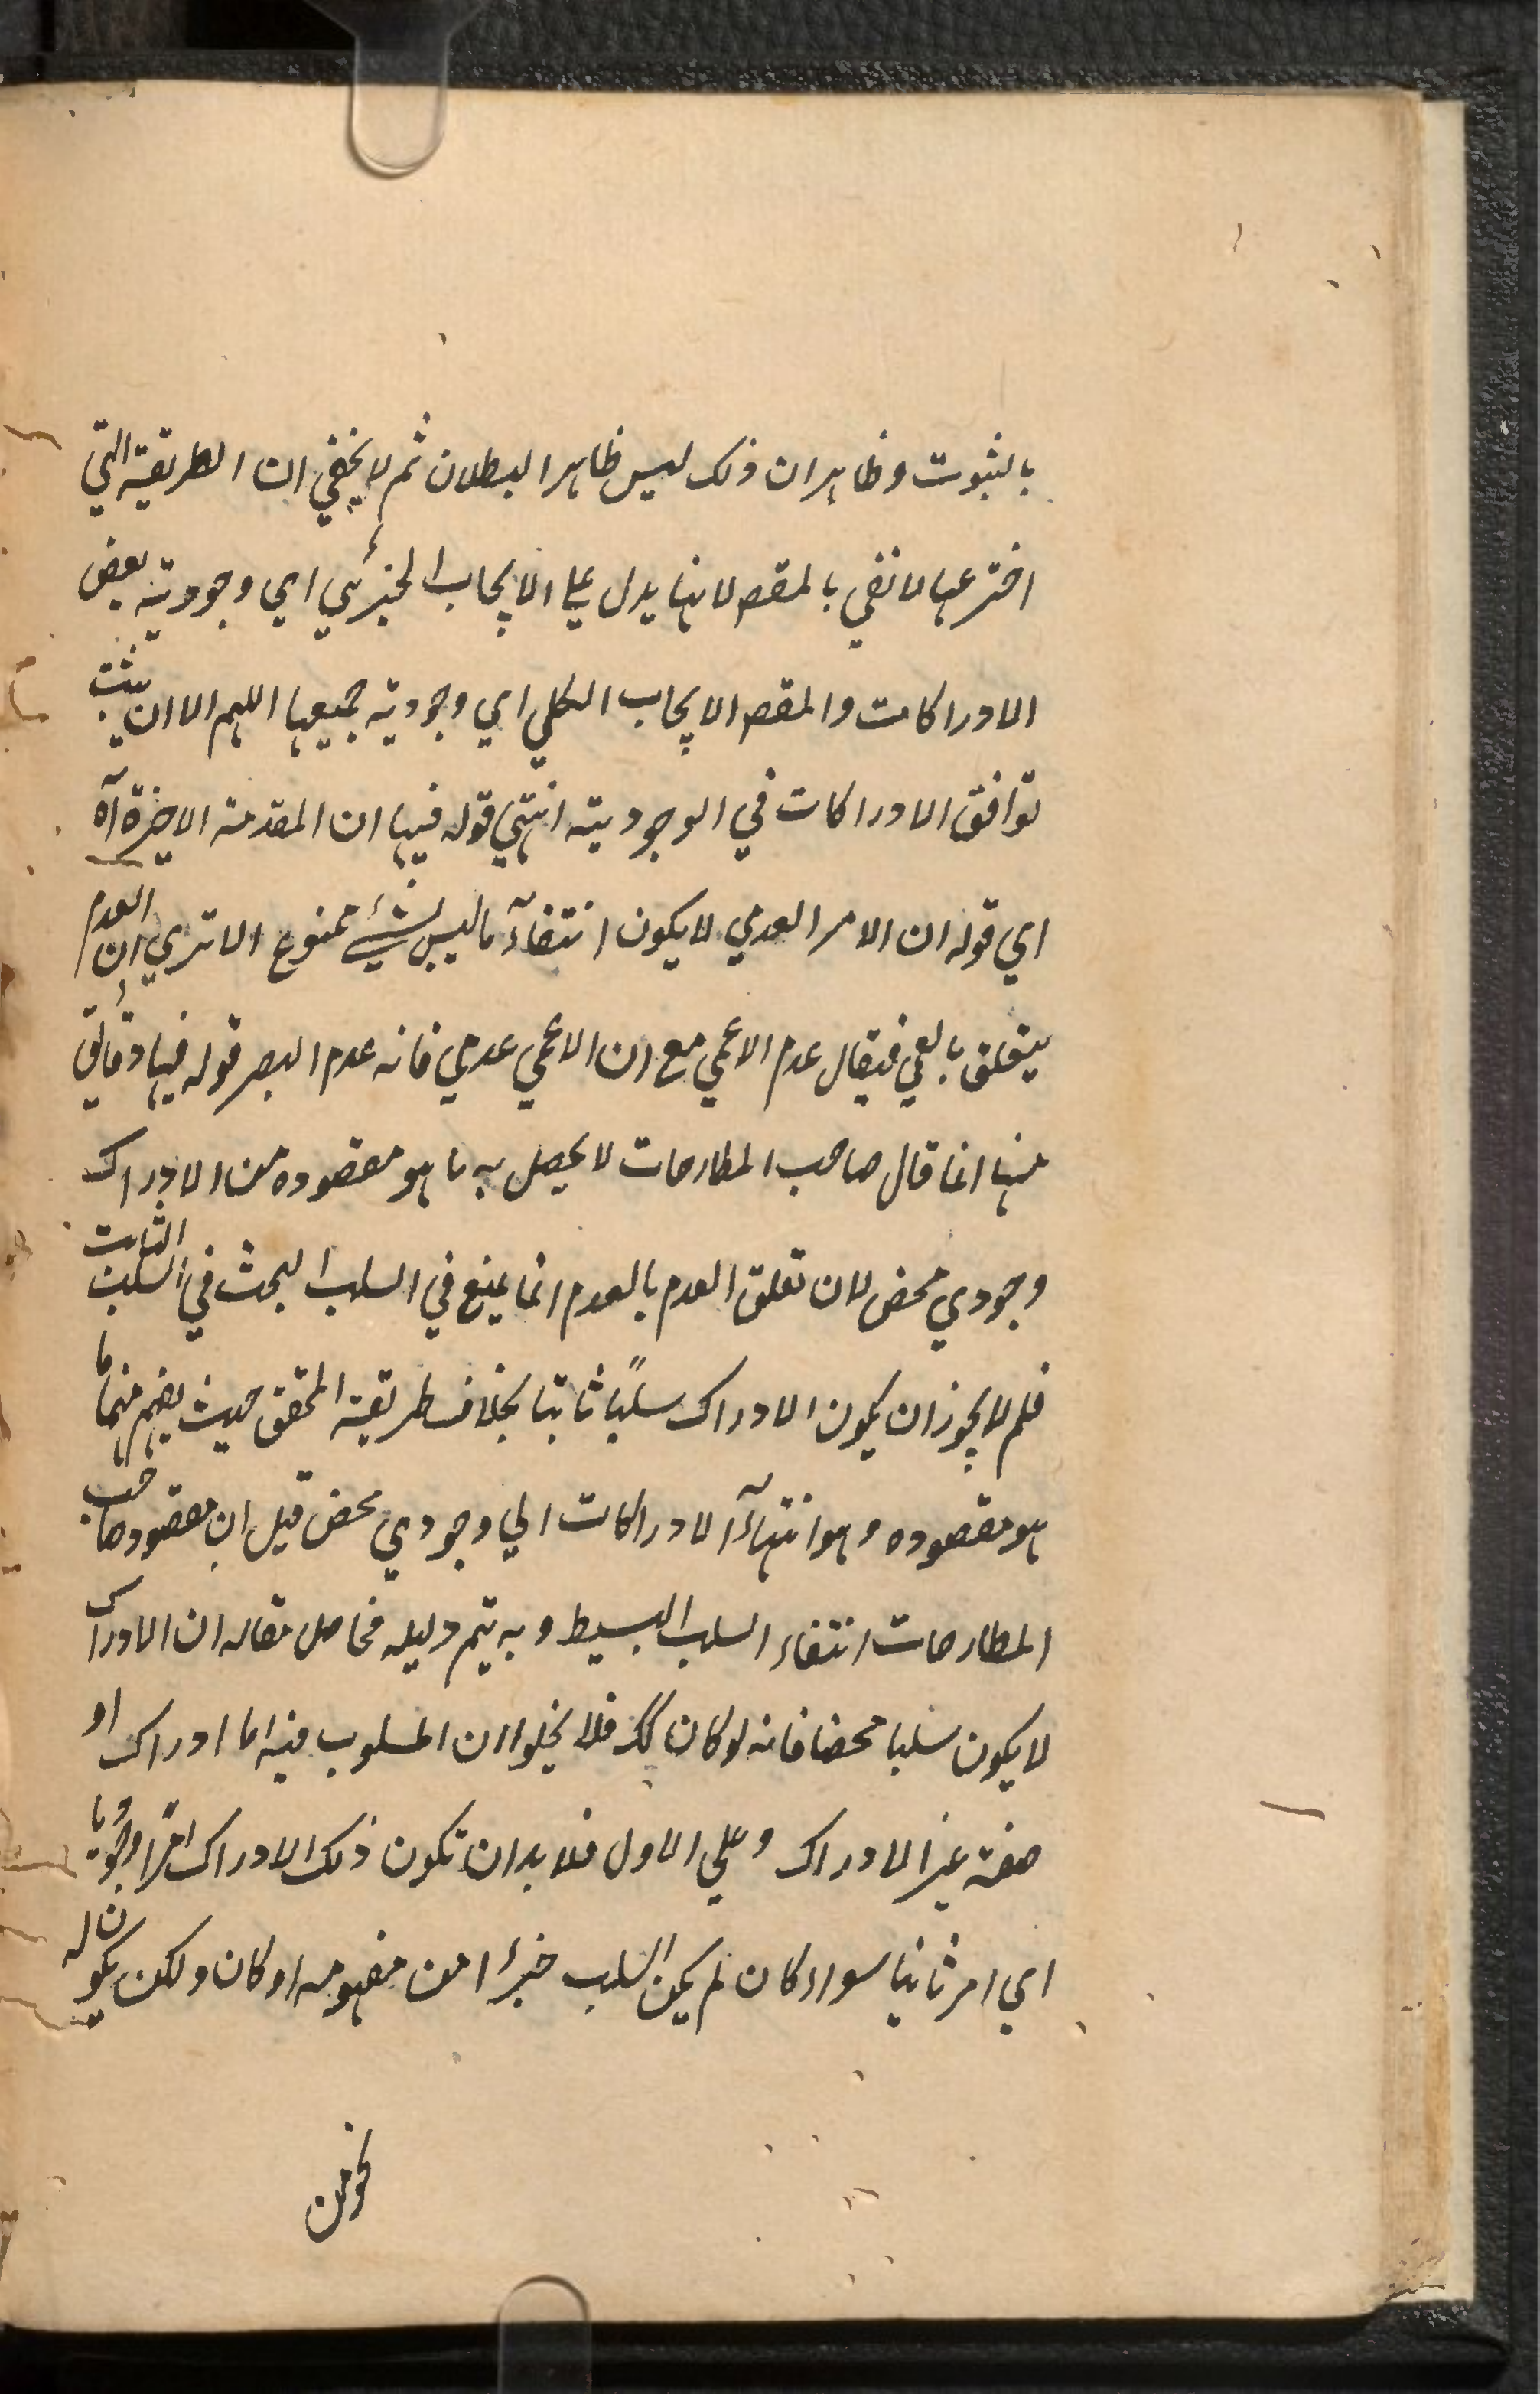 بالثبوت وظاهر ان ذلك ليس ظاهر البطلان ثم لا يخفي ان الطريقية التي
اخترعها لا تفي بالمقصه لانها يدل علي الايجاب الجزئي اي وجودية بعض
الادراكات والمقصه الايجاب الكلي اي وجودية جميعها اللهم الا ان يثبت
توافق الادراكات في الوجودية انتهي قوله فيها ان المقدمة الاخيرة آه
اي قوله ان الامر العدمي لا يكون انتفآء ما ليس بشيء ممنوع الا تري ان العدم
يتعلق بالعمي فيقال عدم الاعمي مع ان الاعمي عدمي فانه عدم البصر قوله فيها
منها انما قال صاحب المطارحات لا يحصل به ما هو مقصوده من الادراك
وجودي محض لان تعلق العدم بالعدم انما يمنع في السلب البحث في السلب الثابت
فلم لا يجوز ان يكون الادراك سلبًا ثابتا بخلاف طريقة المحقق حيث يفهم منها ما
هو مقصوده وهو انتهآء الادراكات الي وجودي محض قيل ان مقصود صاحب
المطارحات انتفاء السلب البسيط وبه يتم دليله فحاصل مقاله ان الادراك
لا يكون سلبا محضا فانه لو كان كك فلا يخلوا ان المسلوب فيه اما ادراك او
صفة غير الادراك وعلي الاول فلا بد ان تكون ذلك الادراك امرًا وجوديا
اي امر ثانيا سواء كان لم يكن السلب جزءا من مفهومه او كان ولكن يكون له
نحو من